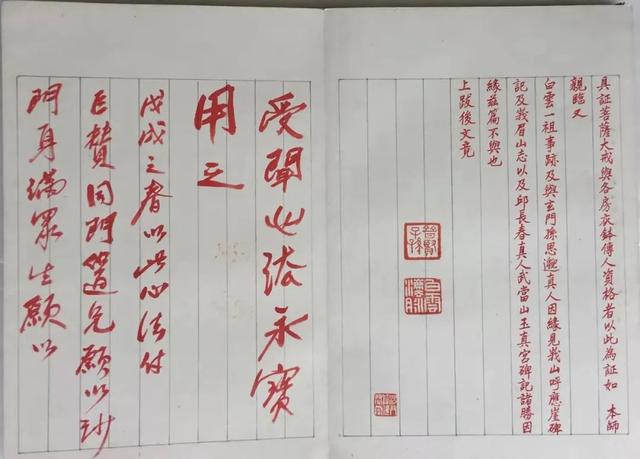 具証菩薩大戒與各房衣鉢傳人資格者以此為証如 本師
親臨又
白雲一祖事跡及與玄門孫思邈真人因緣見峩山呼應崖碑
記及峩眉山志以及邱長春真人武當山玉真宮碑記諸勝因
緣茲篇不與也
上跋後文竟
普賢
子孫
白雲
受聞心法永寶
用之
戊戌之春以此心法付
巨贊同門道兄願以妙
門身滿眾生願以